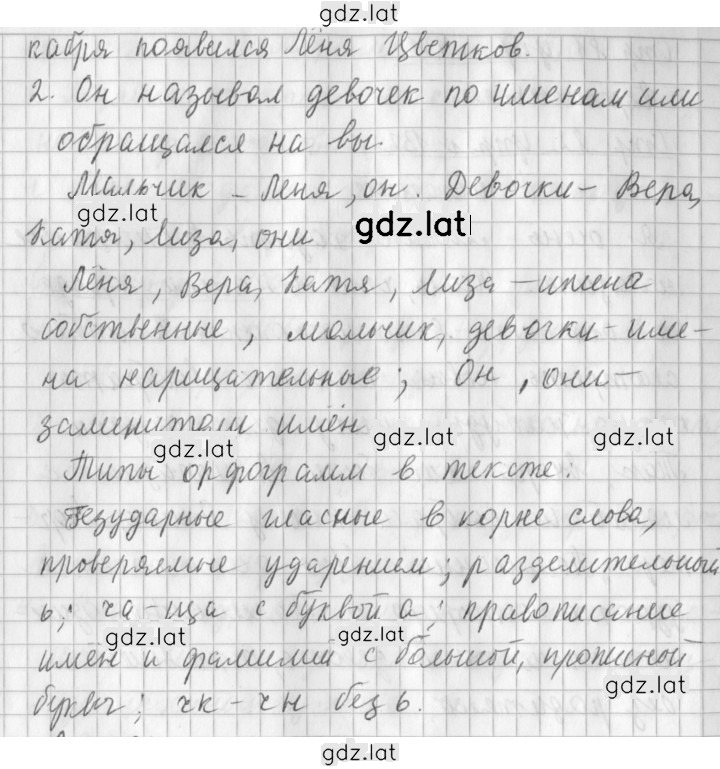 gdz.lat
кабря появился Лёня Цветков.
2. Он называл девочек по именам или
обращался на вы.
Мальчик – Лёня, он. Девочки – Вера,
gdz.lat
gdz.lat
Катя, Лиза, они
Лёня, Вера, Катя, Лиза – имена
собственные, мальчик, девочки – име-
на нарицательные; Он, они –
заменители имён
gdz.lat gdz.lat gdz.lat
Типы орфограмм в тексте:
Безударные гласные в корне слова,
проверяемые ударением; разделительный
ь; ча-ща с буквой а; правописание
gdz.lat gdz.lat
имён и фамилий с большой, прописной
gdz.lat
буквы; чк – чн без ь.
gdz.lat